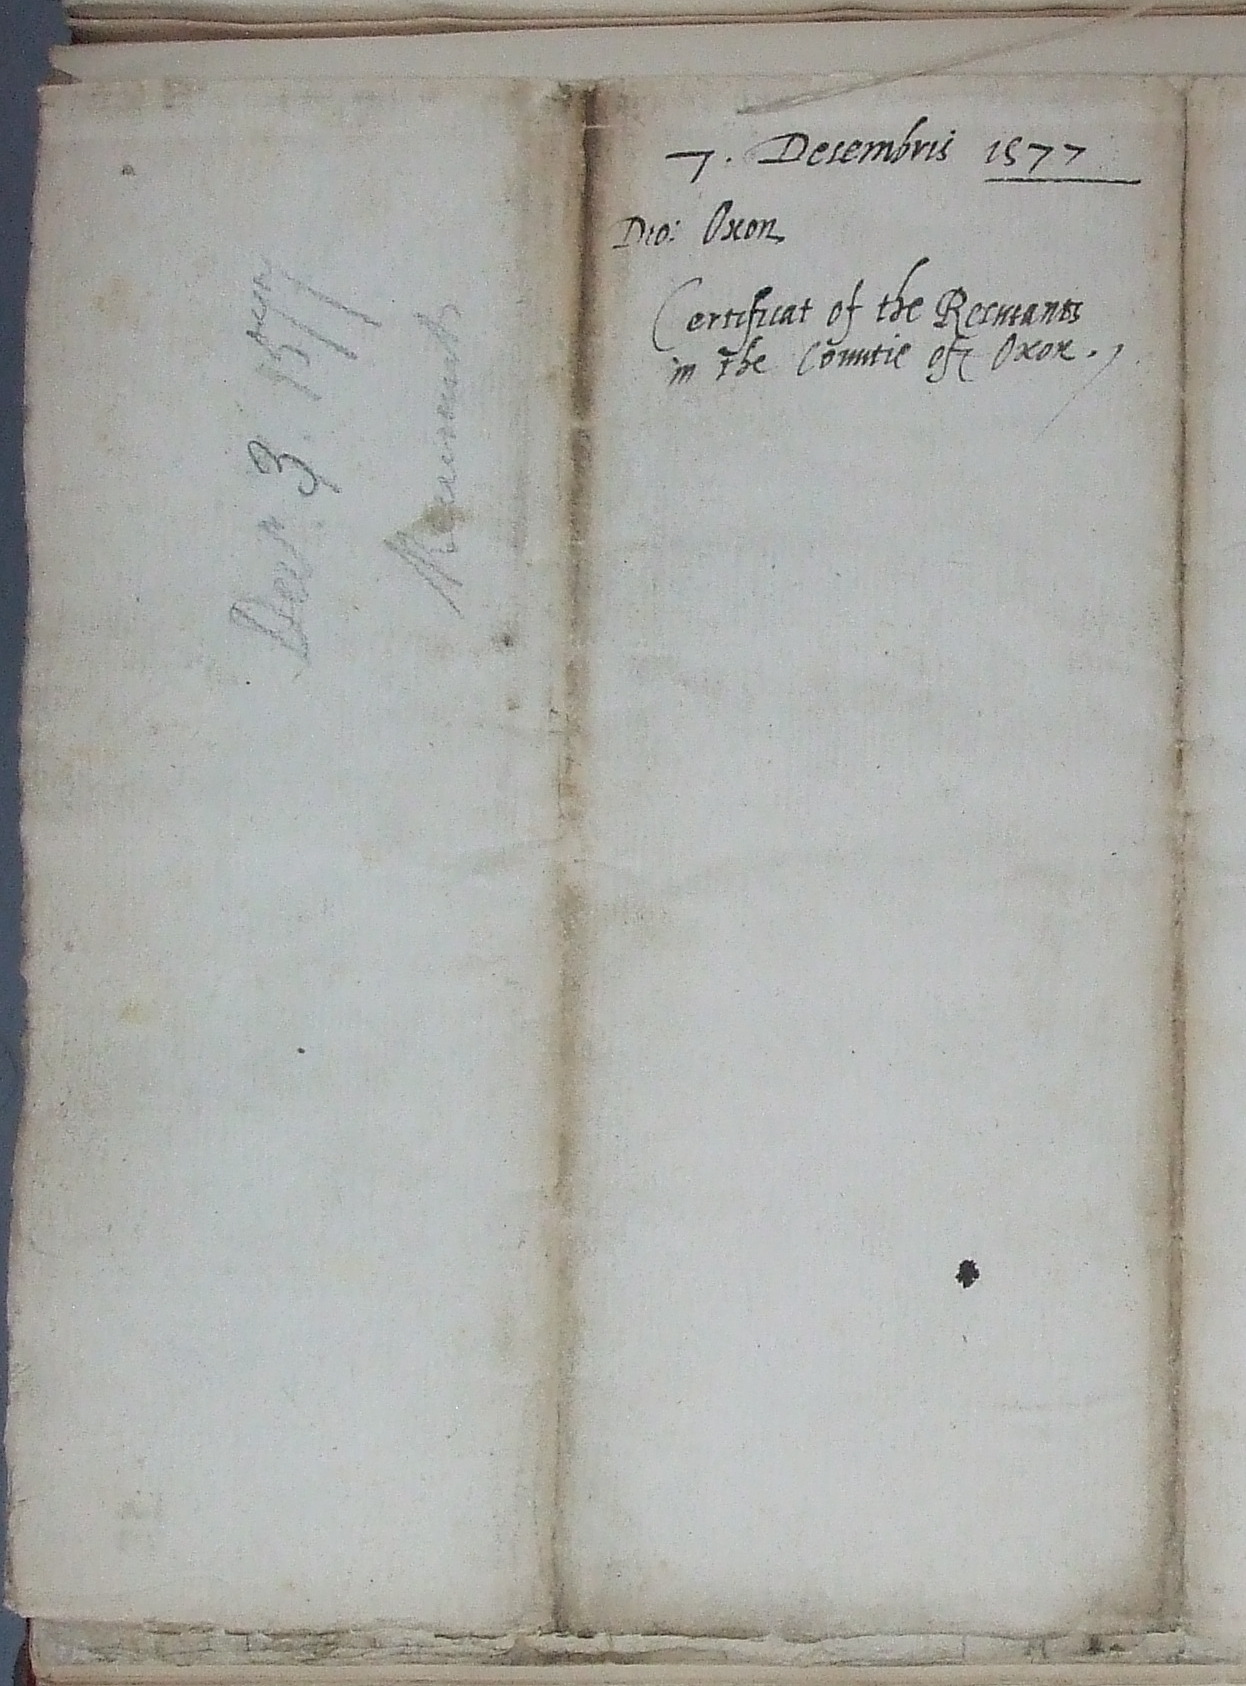 7. Decembris 1577
Dio: Oxon
Certificat of the Recusants
in the Countie of Oxon.,
Decr 1577
Recusants